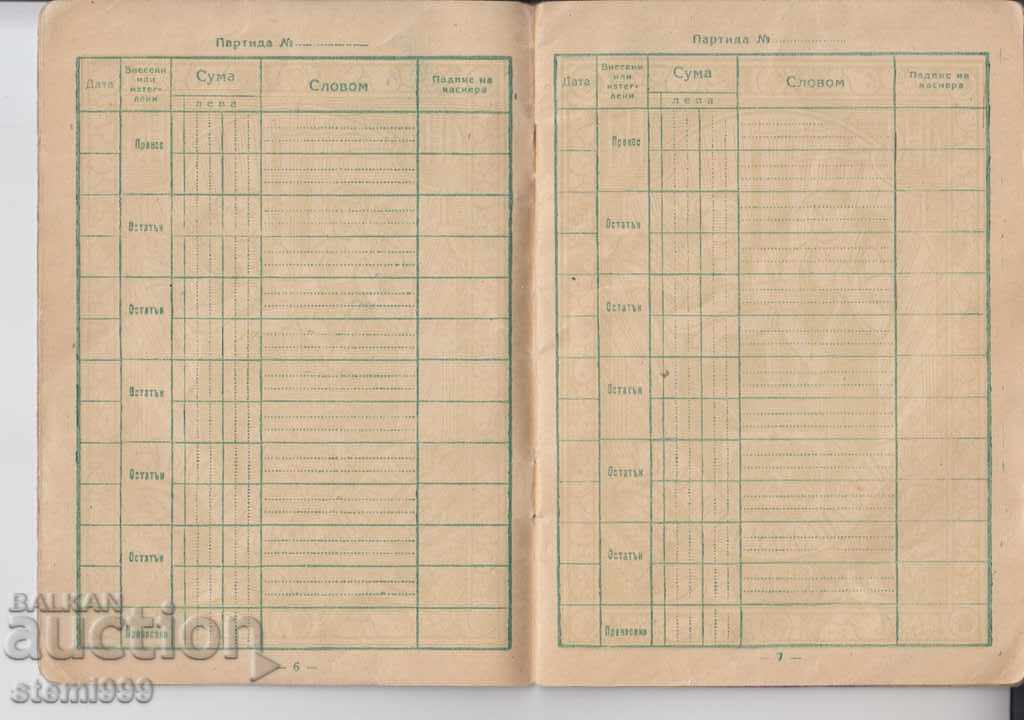 Партида №
Дата
Внесени
или
изтег-
лени
Сума
лева
Словом
Подпис на
касиера
Пренос
Остатък
Остатък
Остатък
Остатък
Остатък
– 6 –
Партида №
Дата
Внесени
или
изтег-
лени
Сума
лева
Словом
Подпис на
касиера
Пренос
Остатък
Остатък
Остатък
Остатък
Остатък
– 7 –
BALKAN
auction
stemi999